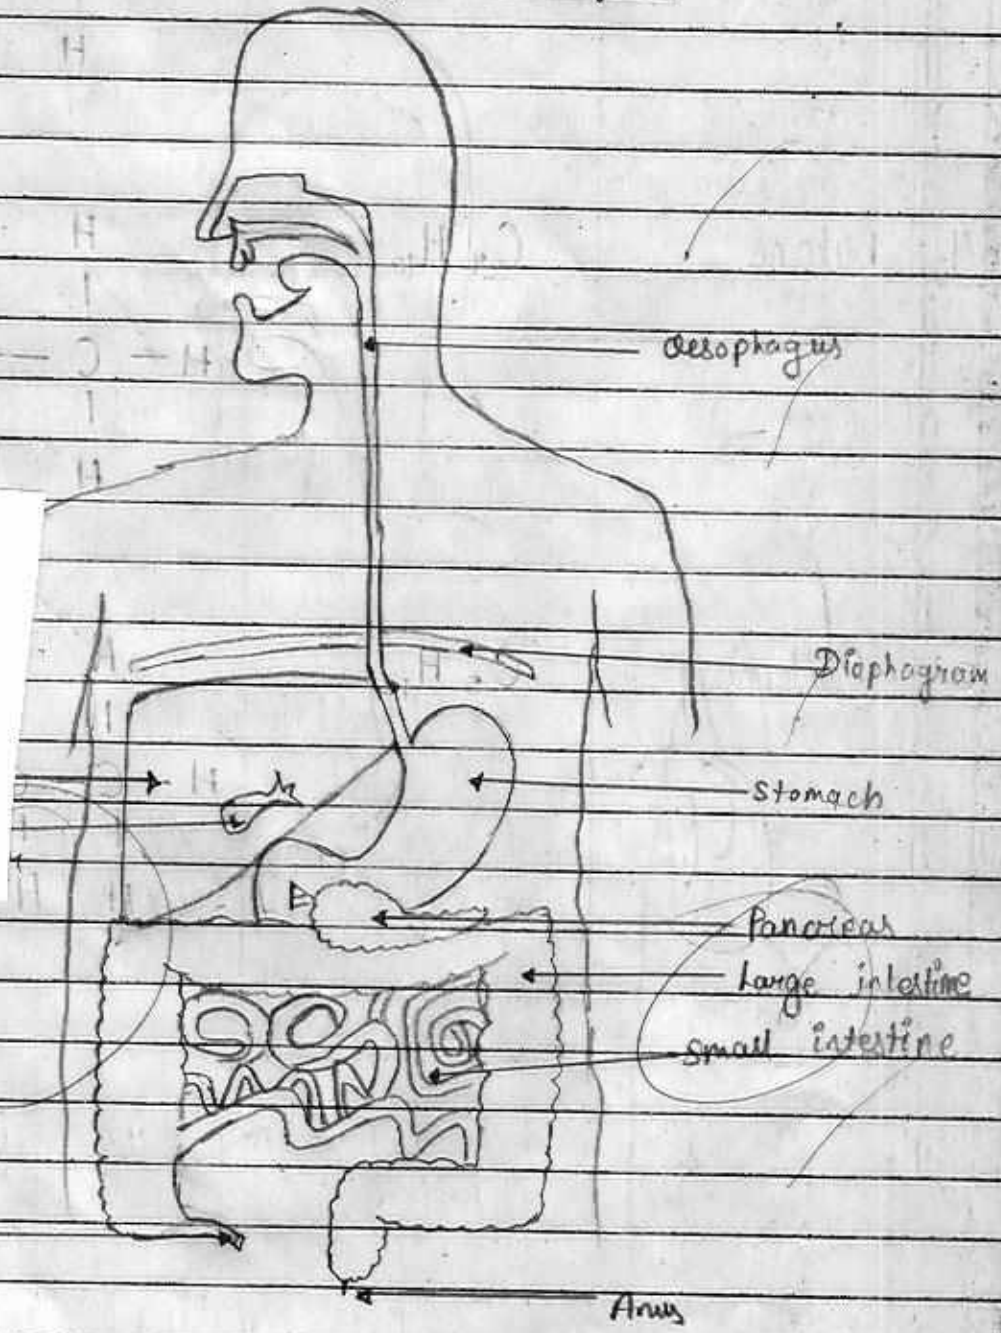 Oesophagus
Diaphagram
Stomach
Pancreas
Large intestine
Small intestine
Anus